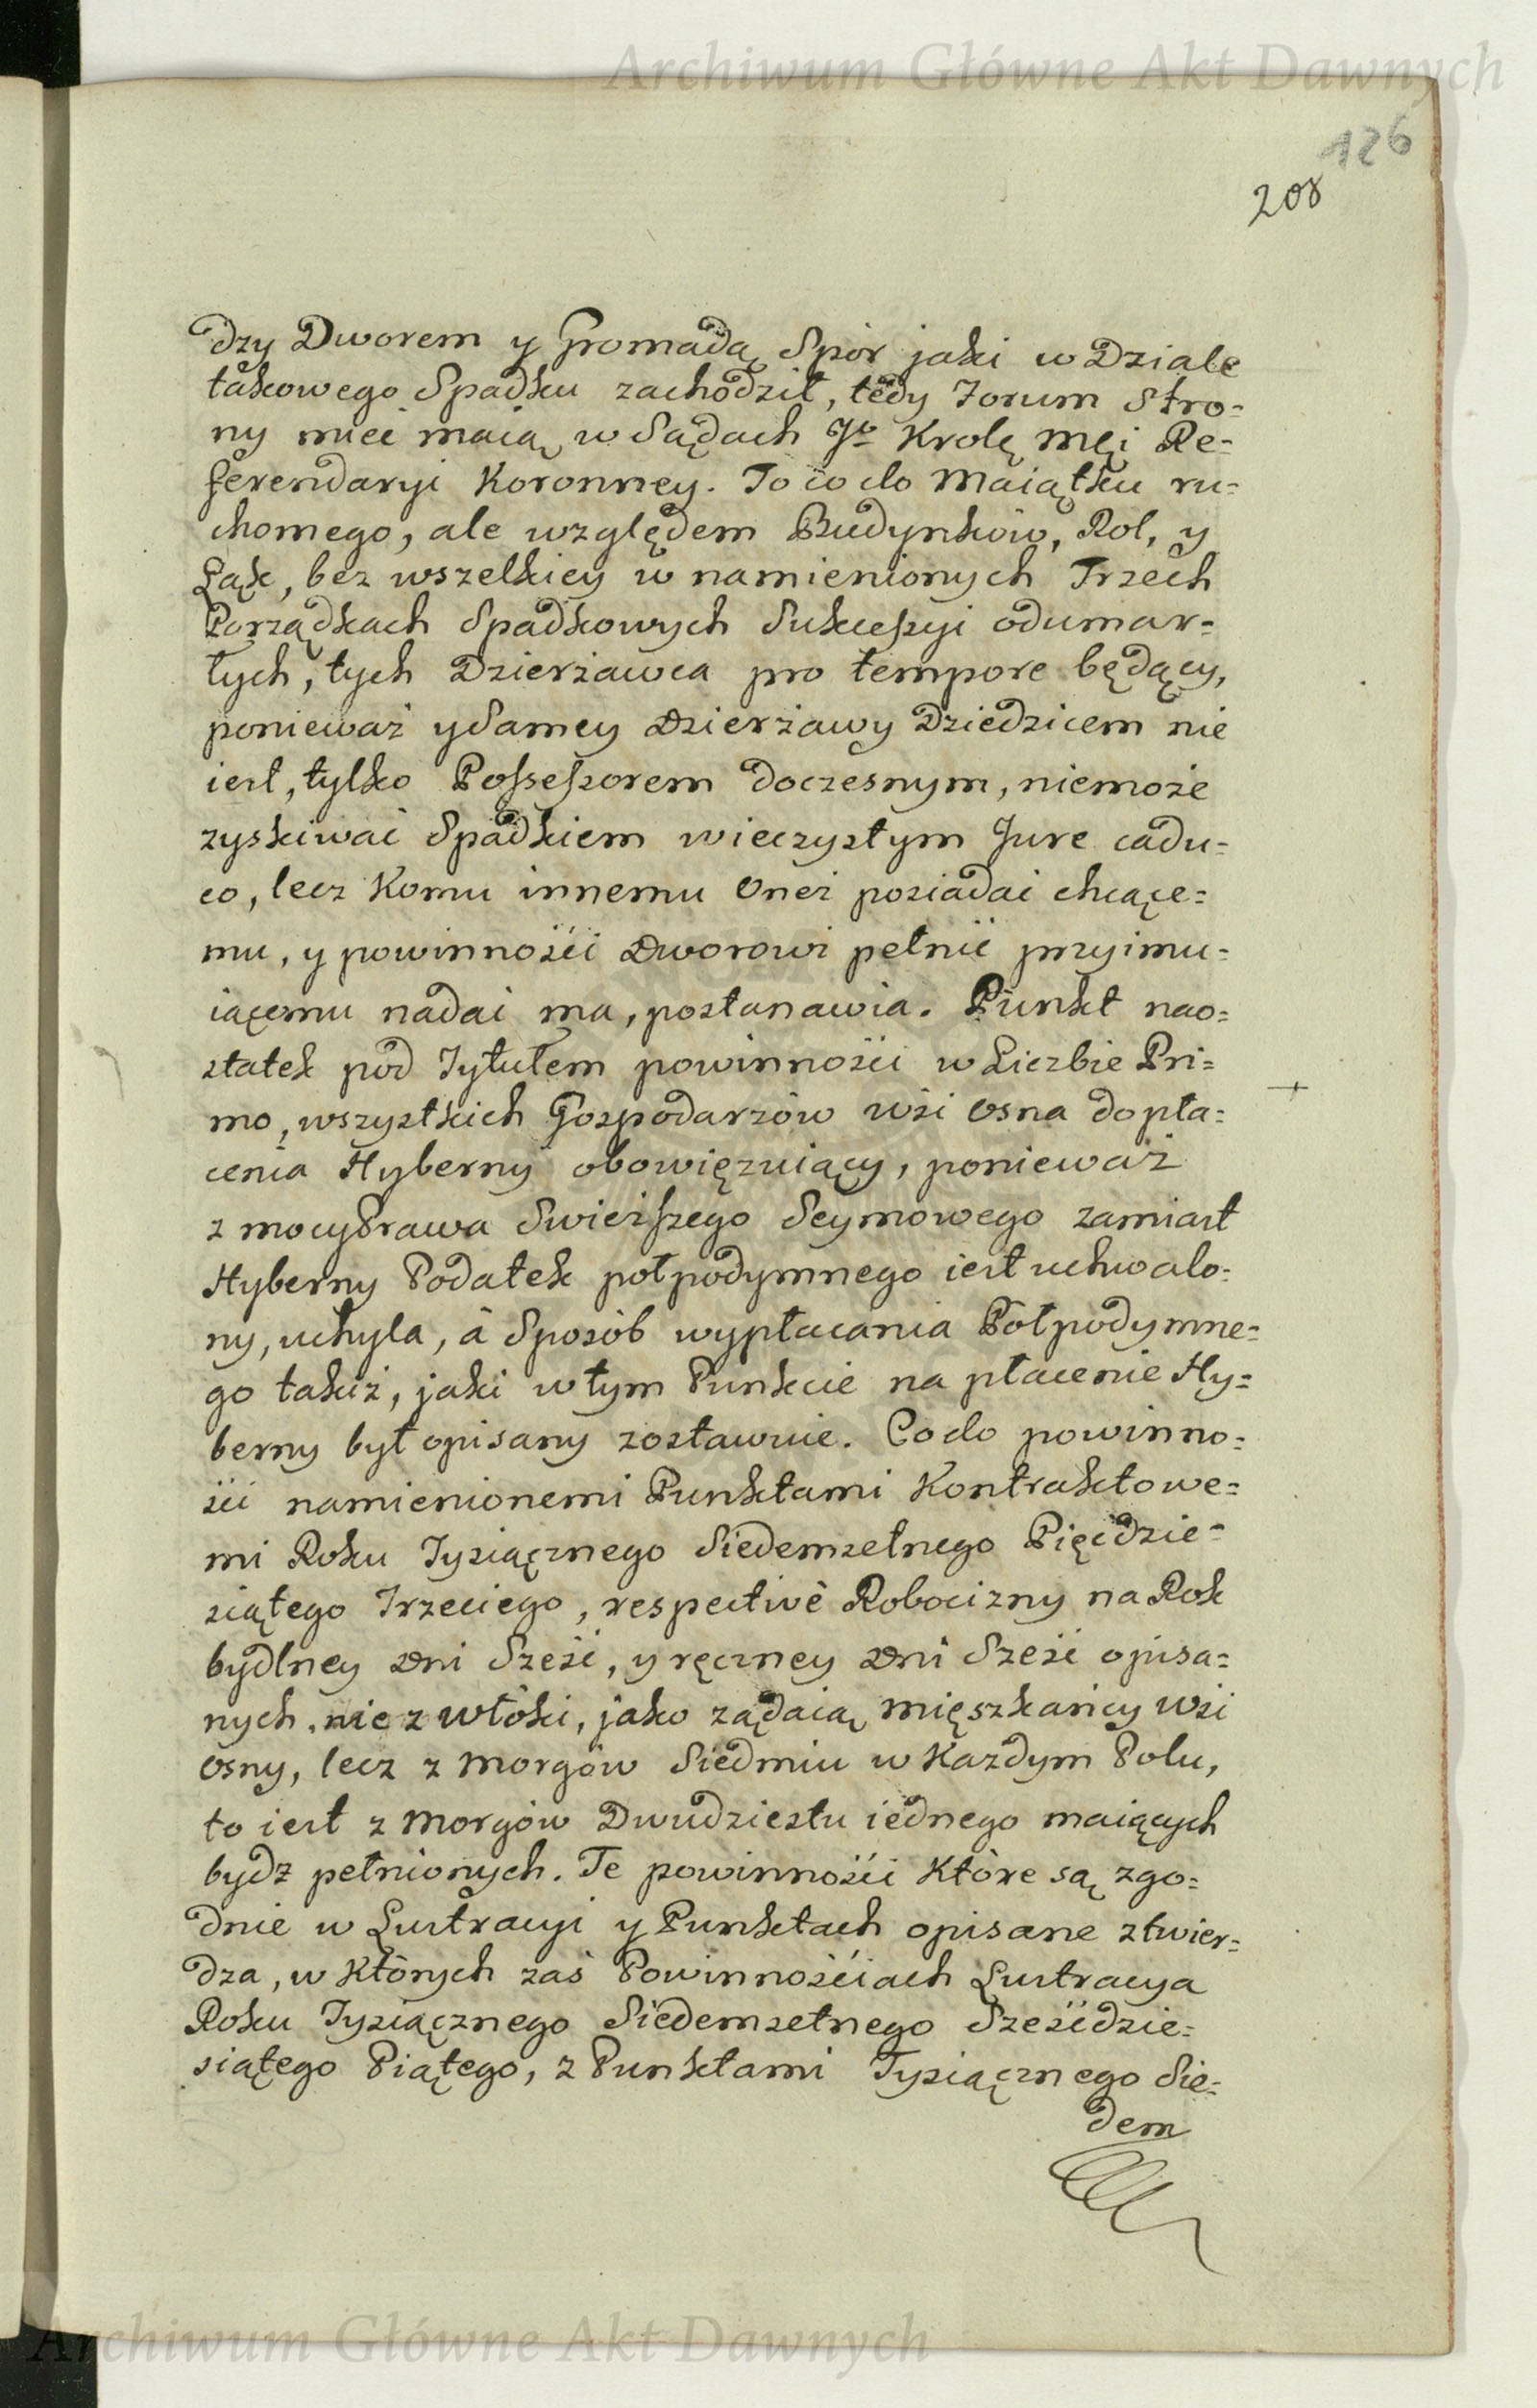 Archiwum Główne Akt Dawnych
126
208
dzy Dworem y Gromadą Spór jaki w Dziale
takowego Spadku zachodził, tedy Forum Stro=
ny mieć maią w Sądach Jo Krolę Męi Re=
ferendaryi Koronney. To co do Maiątku ru=
chomego, ale względem Budynków, Rol, y
Łąk, bez wszelkiey w namienionych Trzech
Porządkach Spadkowych Sukcessyi odumar=
łych, tych Dzierżawca pro tempore będący,
ponieważ y Samey Dzierżawy Dziedzicem nie
iest, tylko Possessorem doczesnym, niemoże
zyskiwać Spadkiem wieczystym Jure cadu=
co, lecz Komu innemu Oneż posiadać chcące=
mu, y powinności Dworowi pełnić przyimu=
iącemu nadać ma, postanawia. Punkt nao=
statek pod Tytułem powinności w Liczbie Pri=
mo, wszystkich Gospodarzów wsi Osna do pła=
cenia Hyberny obowięzuiący, ponieważ
z mocy Prawa Swieższego Seymowego zamiast
Hyberny Podatek połpodymnego iest uchwalo=
ny, uchyla, á Sposób wypłacania Połpodymne=
go takiż, jaki w tym Punkcie na płacenie Hy=
berny był opisany zostawuie. Co do powinno=
ści namienionemi Punktami Kontraktowe=
mi Roku Tysiącznego Siedemsetnego Pięćdzie=
siątego Trzeciego, respectivè Robocizny na Rok
bydlney Dni Sześć, y ręczney Dni Sześć opisa=
nych, nie z włóki, jako żądaią Mięszkańcy Wsi
Osny, lecz z Morgów Siedmiu w Każdym Polu,
to iest z Morgów Dwudziestu iednego maiących
bydź pełnionych. Te powinności Które są zgo=
dnie w Lustracyi y Punktach opisane ztwier=
dza, w Których zaś Powinnościach Lustracya
Roku Tysiącznego Siedemsetnego Sześćdzie=
siątego Piątego, z Punktami Tysiącznego Sie=
dem
Archiwum Główne Akt Dawnych